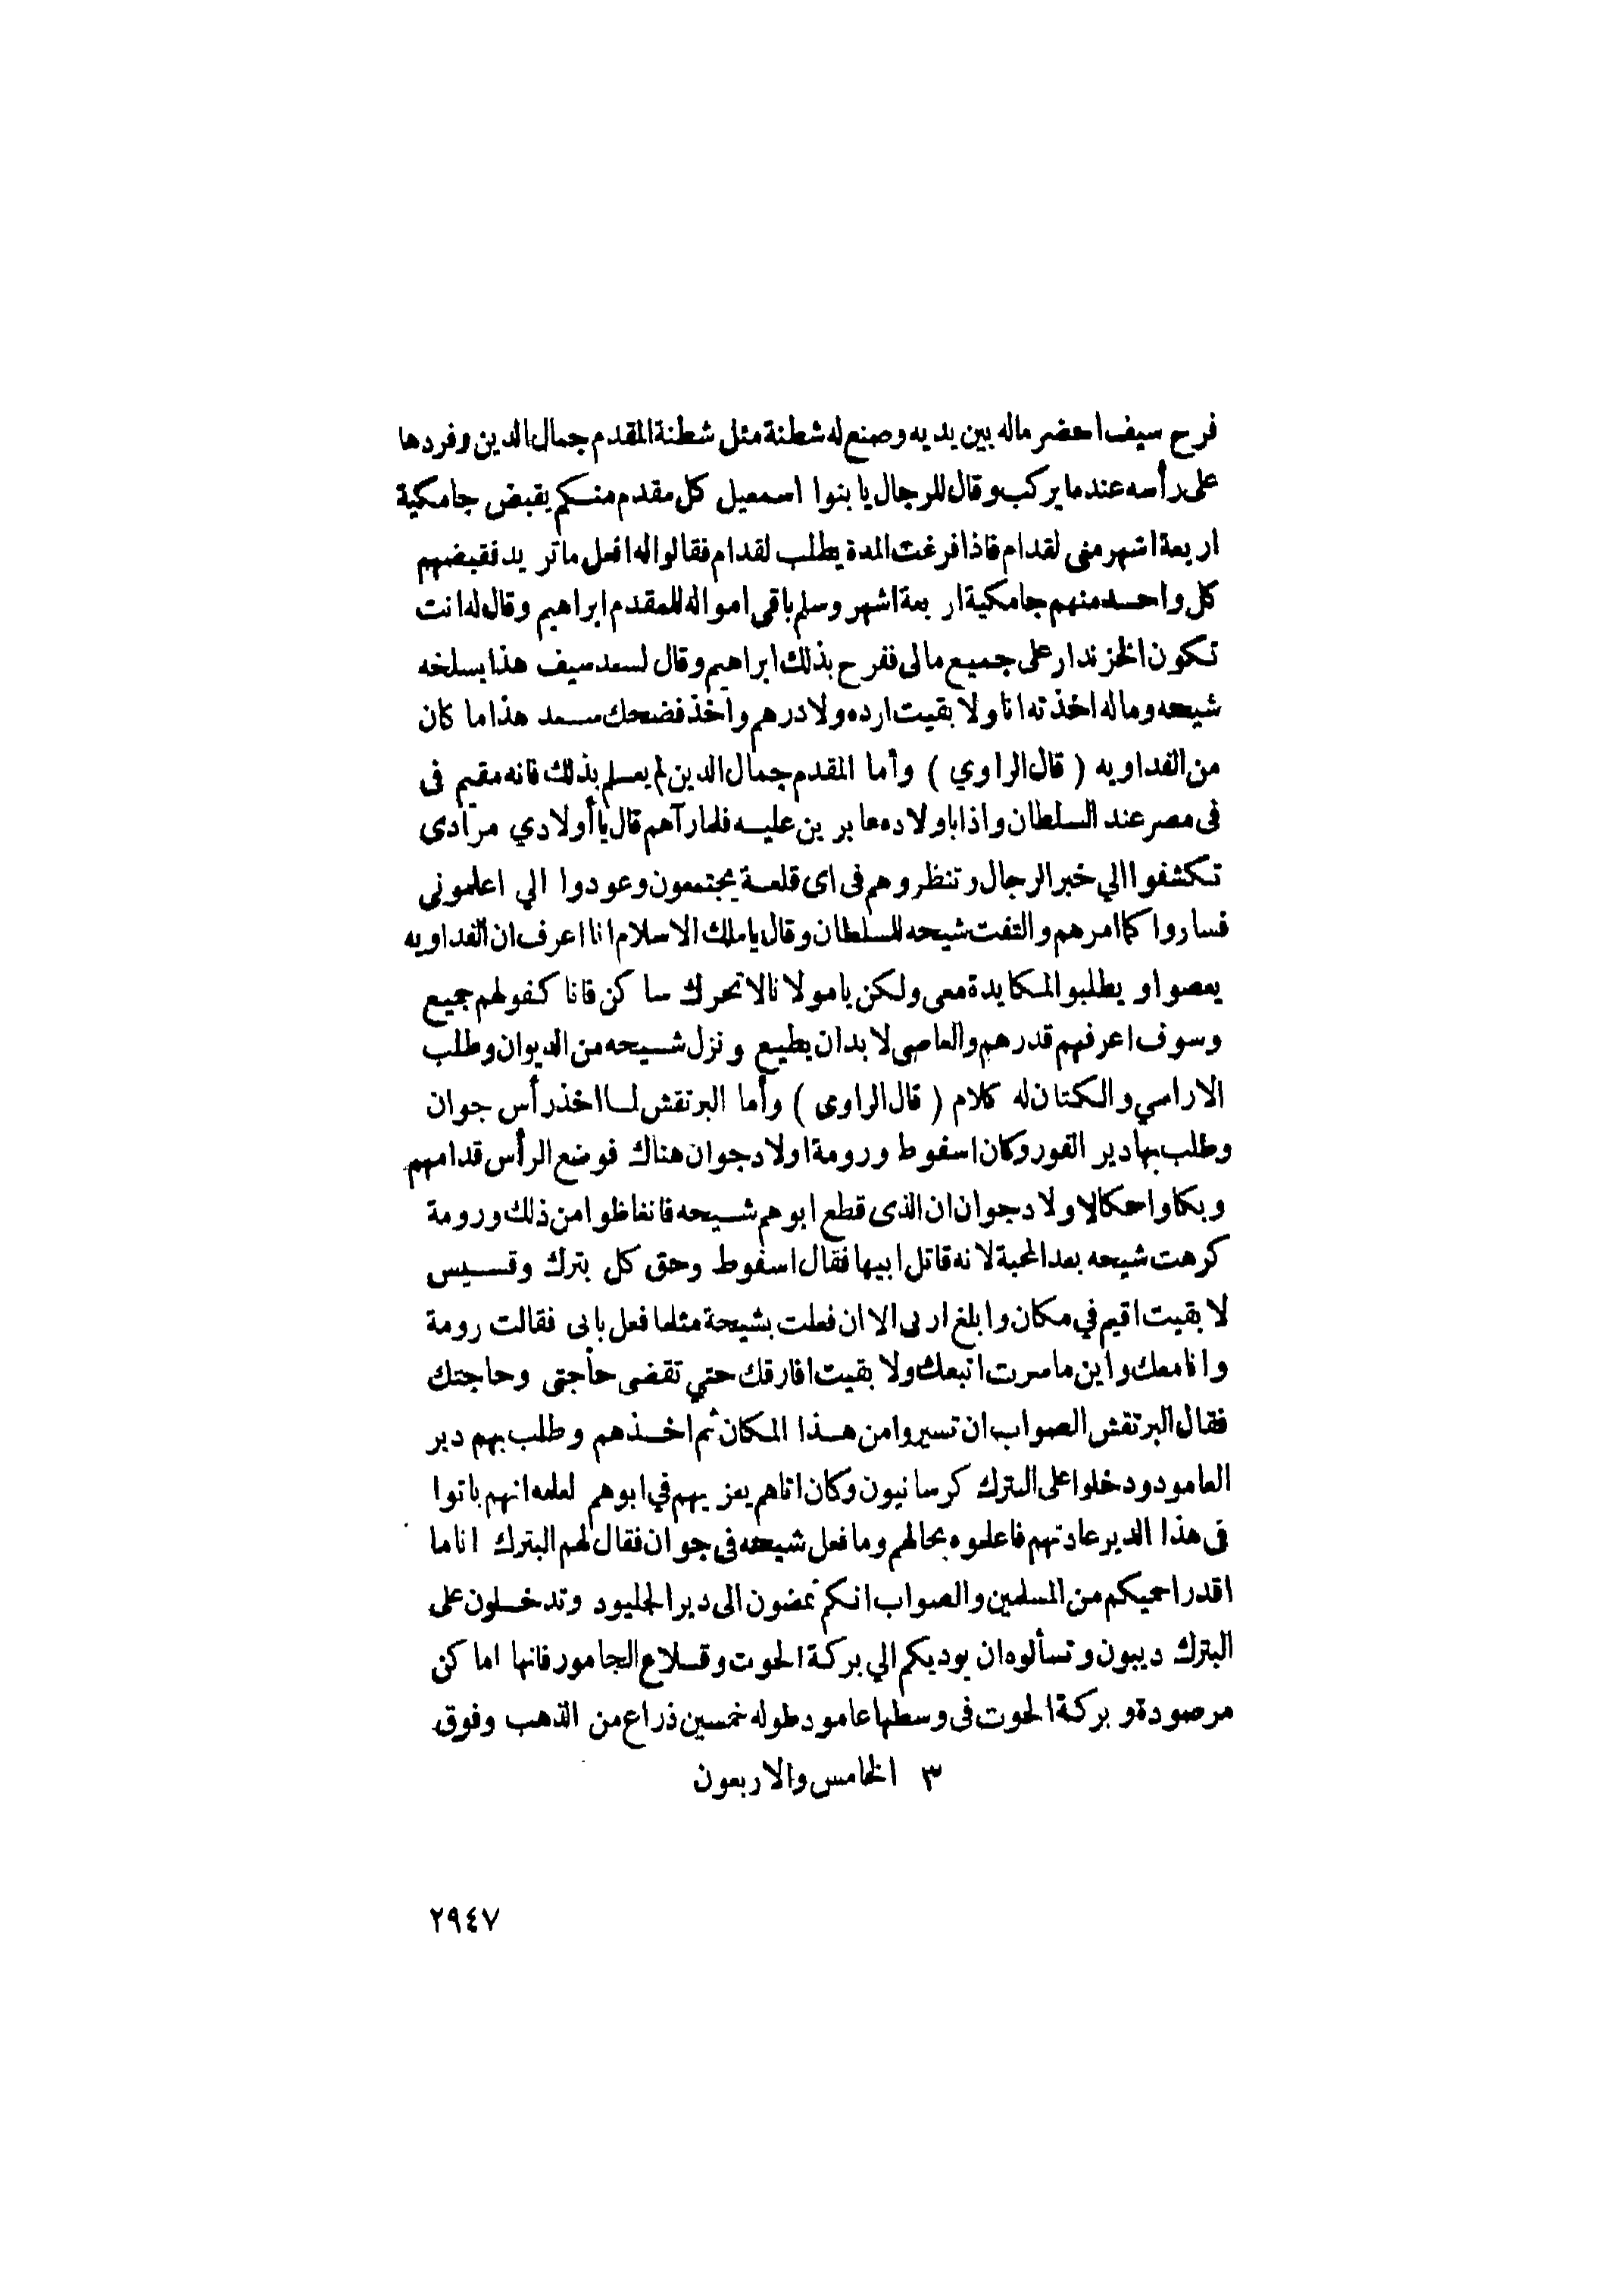 فرح سيف احضر ماله بين يديه وصنع له شطنة مثل شطنة المقدم جمال الدين وفردها
على رأسه عندما يركب وقال للرجال يا بنوا اسمعيل كل مقدم منكم يقبض جامكية
اربعة اشهر منى لقدام فاذا فرغت المدة يطلب لقدام فقالوا له افعل ما تريد فقبضهم
كل واحد منهم جامكية اربعة اشهر وسلم باقى امواله للمقدم ابراهيم وقال له انت
تكون الخزندار على جميع مالى ففرح بذلك ابراهيم وقال لسعد سيف هذا بسلخه
شيحه وماله اخذته انا ولا بقيت ارده ولا درهم واخذ فضحك سعد هذا ما كان
من الفداويه ( قال الراوي ) وأما المقدم جمال الدين لم يعلم بذلك فانه مقيم فى
فى مصر عند السلطان واذا باولاده عابرين عليه فلما رآهم قال يا أولادي مرادى
تكشفوا الي خبر الرجال وتنظروهم فى اى قلعة يجتمعون وعودوا الي اعلمونى
فساروا كما امرهم والتفت شيحه للسلطان وقال يا ملك الاسلام انا اعرف ان الفداويه
يعصوا ويطلبو المكايدة معى ولكن يا مولانا لا تحرك ساكن فانا كفو لهم جميع
وسوف اعرفهم قدرهم والعاصى لا بد ان يطيع ونزل شيحه من الديوان وطلب
الاراسي والكتان له كلام ( قال الراوى ) وأما البرتقش لما اخذ رأس جوان
وطلب بها دير الفور وكان اسفوط ورومة اولاد جوان هناك فوضع الرأس قدامهم
وبكا واحكا لاولاد جوان ان الذى قطع ابوهم شيحه فانغاظوا من ذلك ورومة
كرهت شيحه بعد المحبة لانه قاتل ابيها فقال اسفوط وحق كل بترك وقسيس
لا بقيت اقيم في مكان وابلغ اربى الا ان فعلت بشيحة مثلما فعل بابى فقالت رومة
وانا معك واين ما سرت اتبعك ولا بقيت افارقك حتي تقضى حاجتى وحاجتك
فقال البرتقش الصواب ان تسيروا من هذا المكان ثم اخذهم وطلب بهم دير
العامود ودخلوا على البترك كرسانيون وكان اتاهم يعزيهم في ابوهم لعلمه انهم باتوا
فى هذا الدير عادتهم فاعلموه بحالهم وما فعل شيحه فى جوان فقال لهم البترك انا ما
اقدر احميكم من المسلمين والصواب انكم تمضون الى دير الجليود وتدخلون على
البترك ديبون وتسألوه ان يوديكم الي بركة الحوت وقلاع الجامور فانها اماكن
مرصودة وبركة الحوت فى وسطها عامود طوله خمسين ذراع من الذهب وفوق
٣ الخامس والاربعون
٢٩٤٧